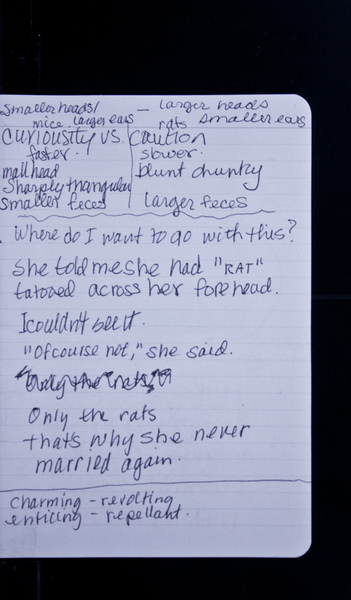 smaller heads/ — larger heads
mice larger ears rats smaller ears
Curiousity vs. Caution
faster. slower.
small head blunt chunky
sharply triangular
smaller feces larger feces
Where do I want to go with this?
She told me she had "RAT"
tatooed across her forehead.
I couldn't see it.
"Ofcourse not," she said.
"Only the rats,"
Only the rats
thats why she never
married again.
charming - revolting
enticing - repellant.